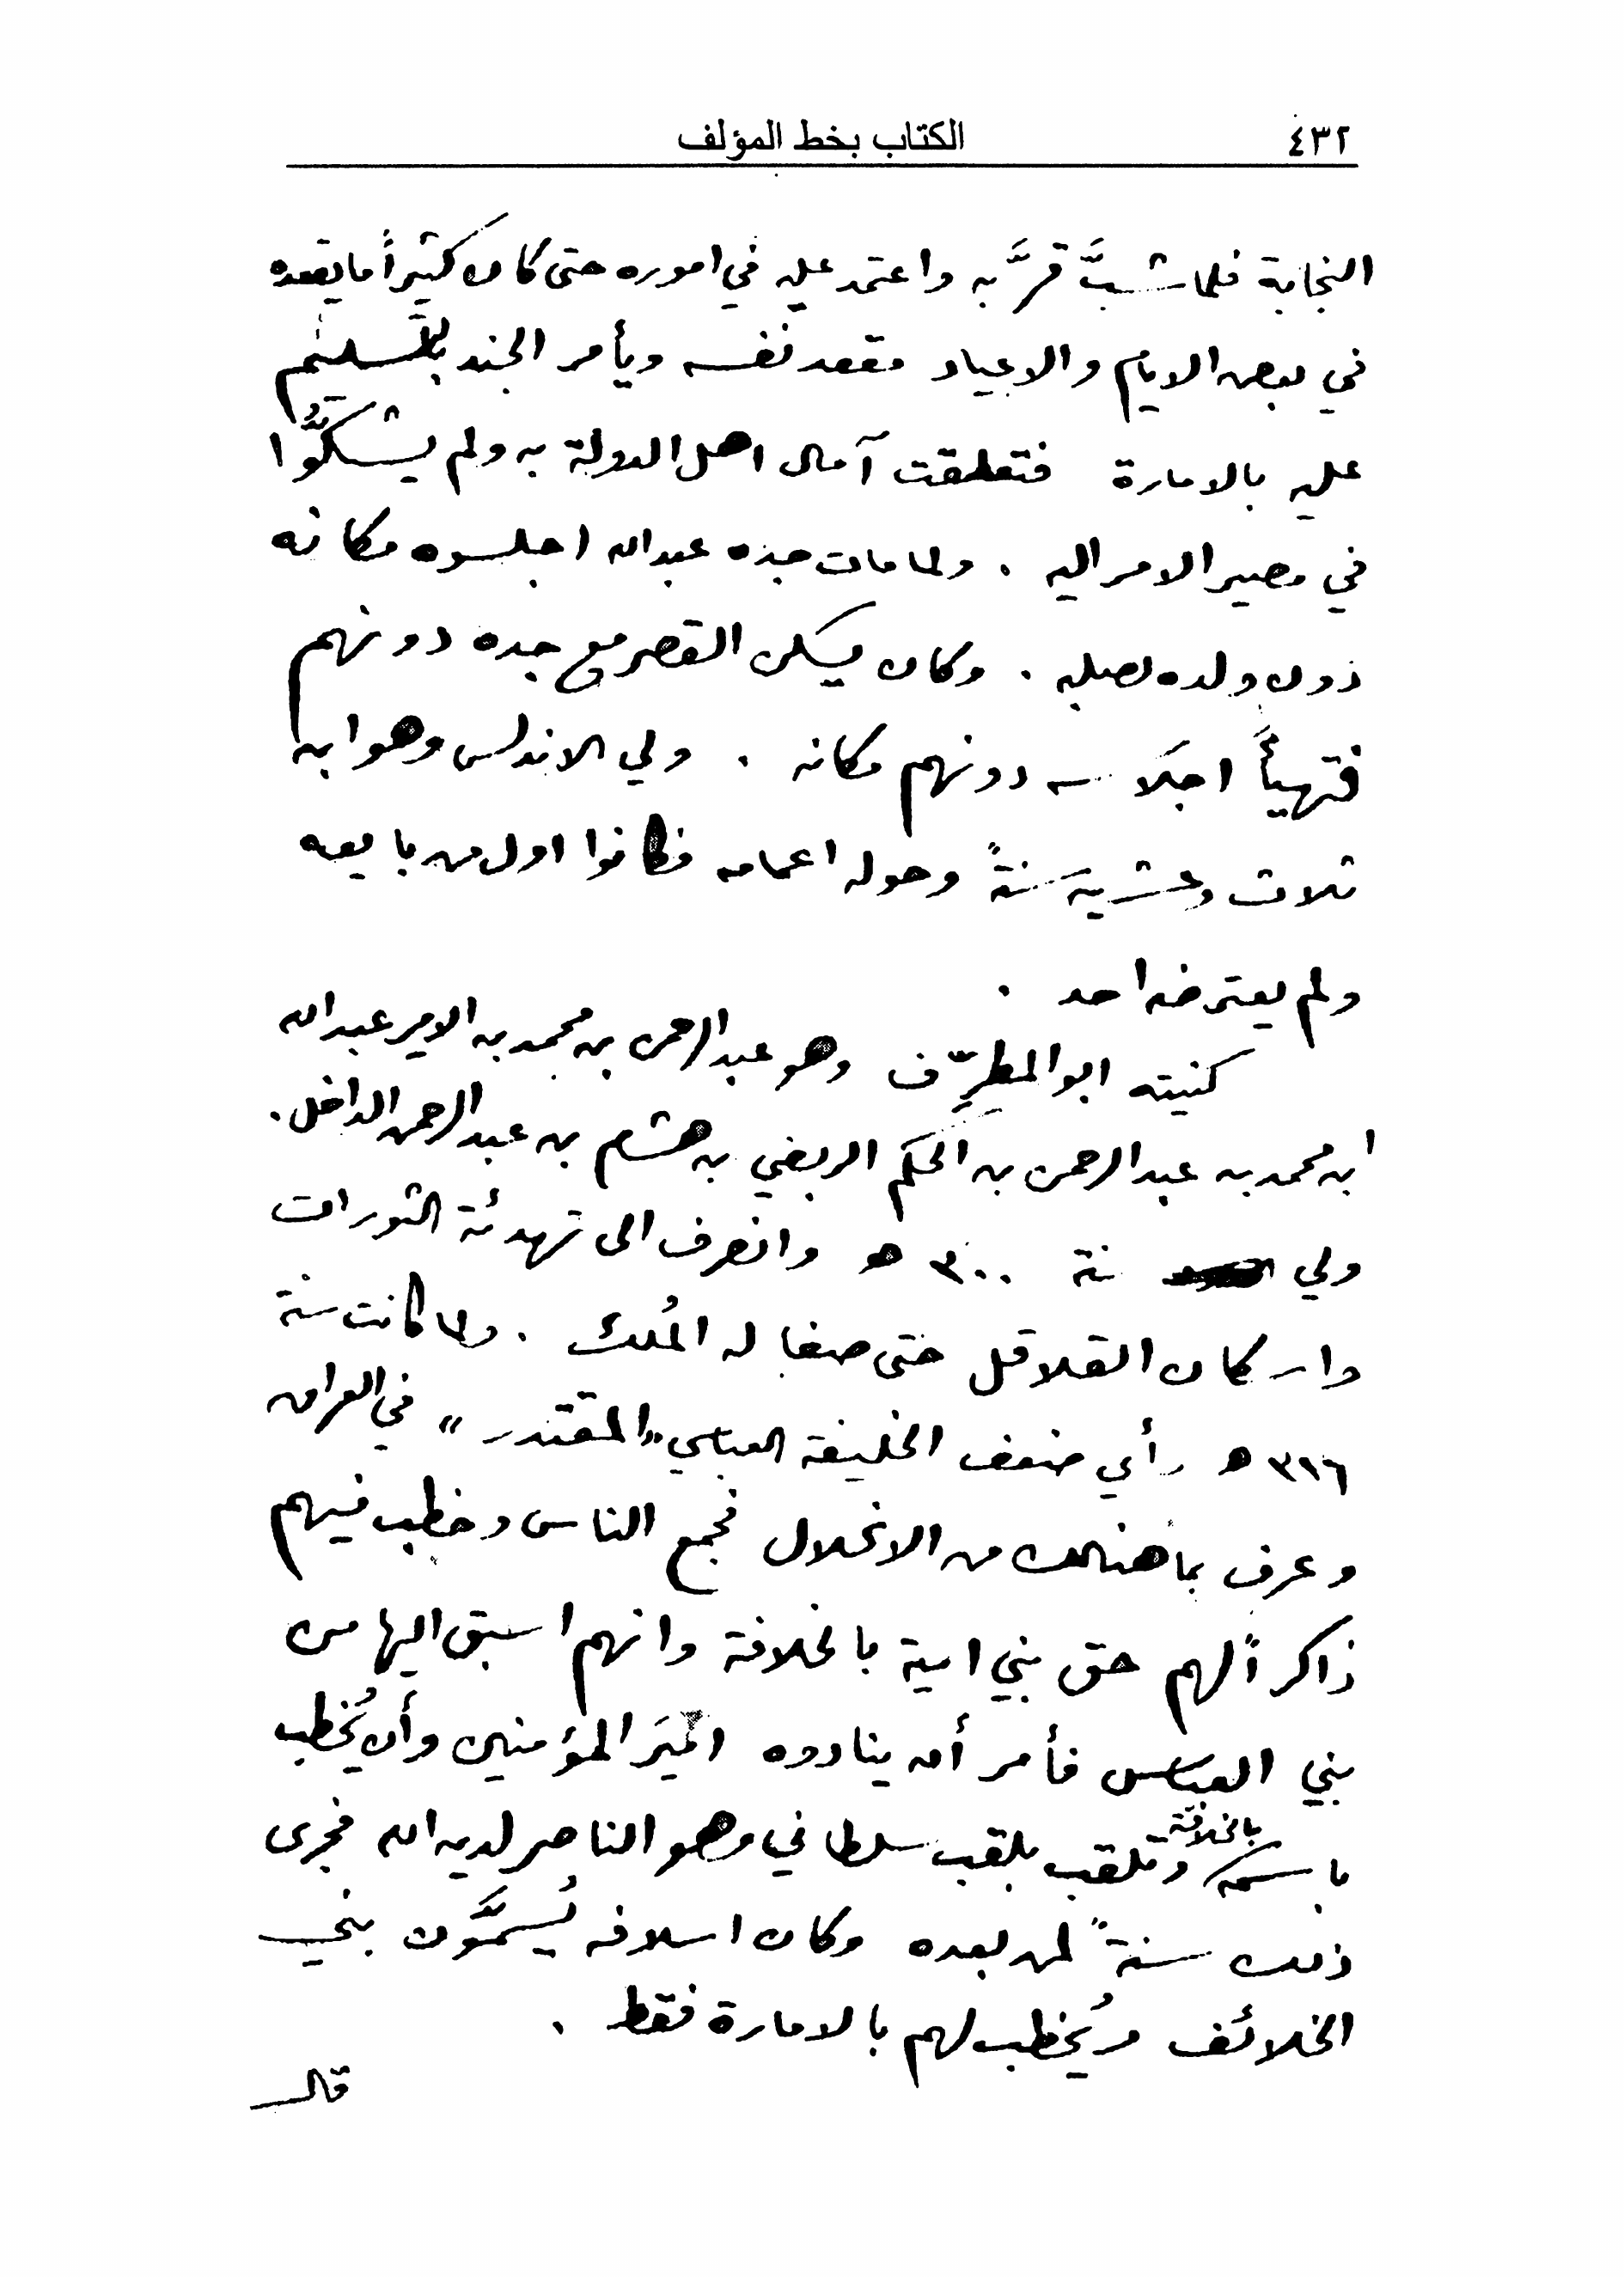 ٤٣٢ الكتاب بخط المؤلف
النجابة فلما شبَّ قرَّبه واعتمد عليه في اموره حتى كان كثيراً ما يقعده
في بعض الايام والاعياد مقعد نفسه ويأمر الجند بالتسليم
عليه بالامارة فتعلقت آمال اهل الدولة به ولم يشكُّوا
في مصير الامر اليه . ولما مات جده عبدالله اجلسوه مكانه
دون ولده لصلبه . وكان يسكن القصر مع جده دونهم
فتهيأَ اجلاسه دونهم مكانه . ولي الاندلس وهو ابن
ثلاث وعشرين سنةً وحوله اعمامه فكانوا اول من بايعه
ولم يعترضه احد .
كنيته ابو المطرِّف وهو عبد الرحمن بن محمد بن الامير عبدالله
ابن محمد بن عبد الرحمن بن الحكم الربضي بن هشام بن عبد الرحمن الداخل .
ولي سنة ٣٠٠ ه وانصرف الى تهدئة الثورات
واركان القلاقل حتى صفا له المُلك . ولما كانت سنة
٣١٦ ه رأى ضعف الخليفة العباسي «المقتدر» في العراق
وعرف بما هنالك من الانحلال فجمع الناس وخطب فيهم
ذاكراً لهم حق بني امية بالخلافة وانهم اسبق اليها من
بني العباس فأمر أن ينادوه اميَر المؤمنين وأن يُخطب
باسمه بالخلافة وتلقب بلقب سلطاني وهو الناصر لدين الله فجرى
ذلك سنةً لمن بعده وكان اسلافه يُسمَّون بني
الخلائف ويُخطب لهم بالامارة فقط .
قال